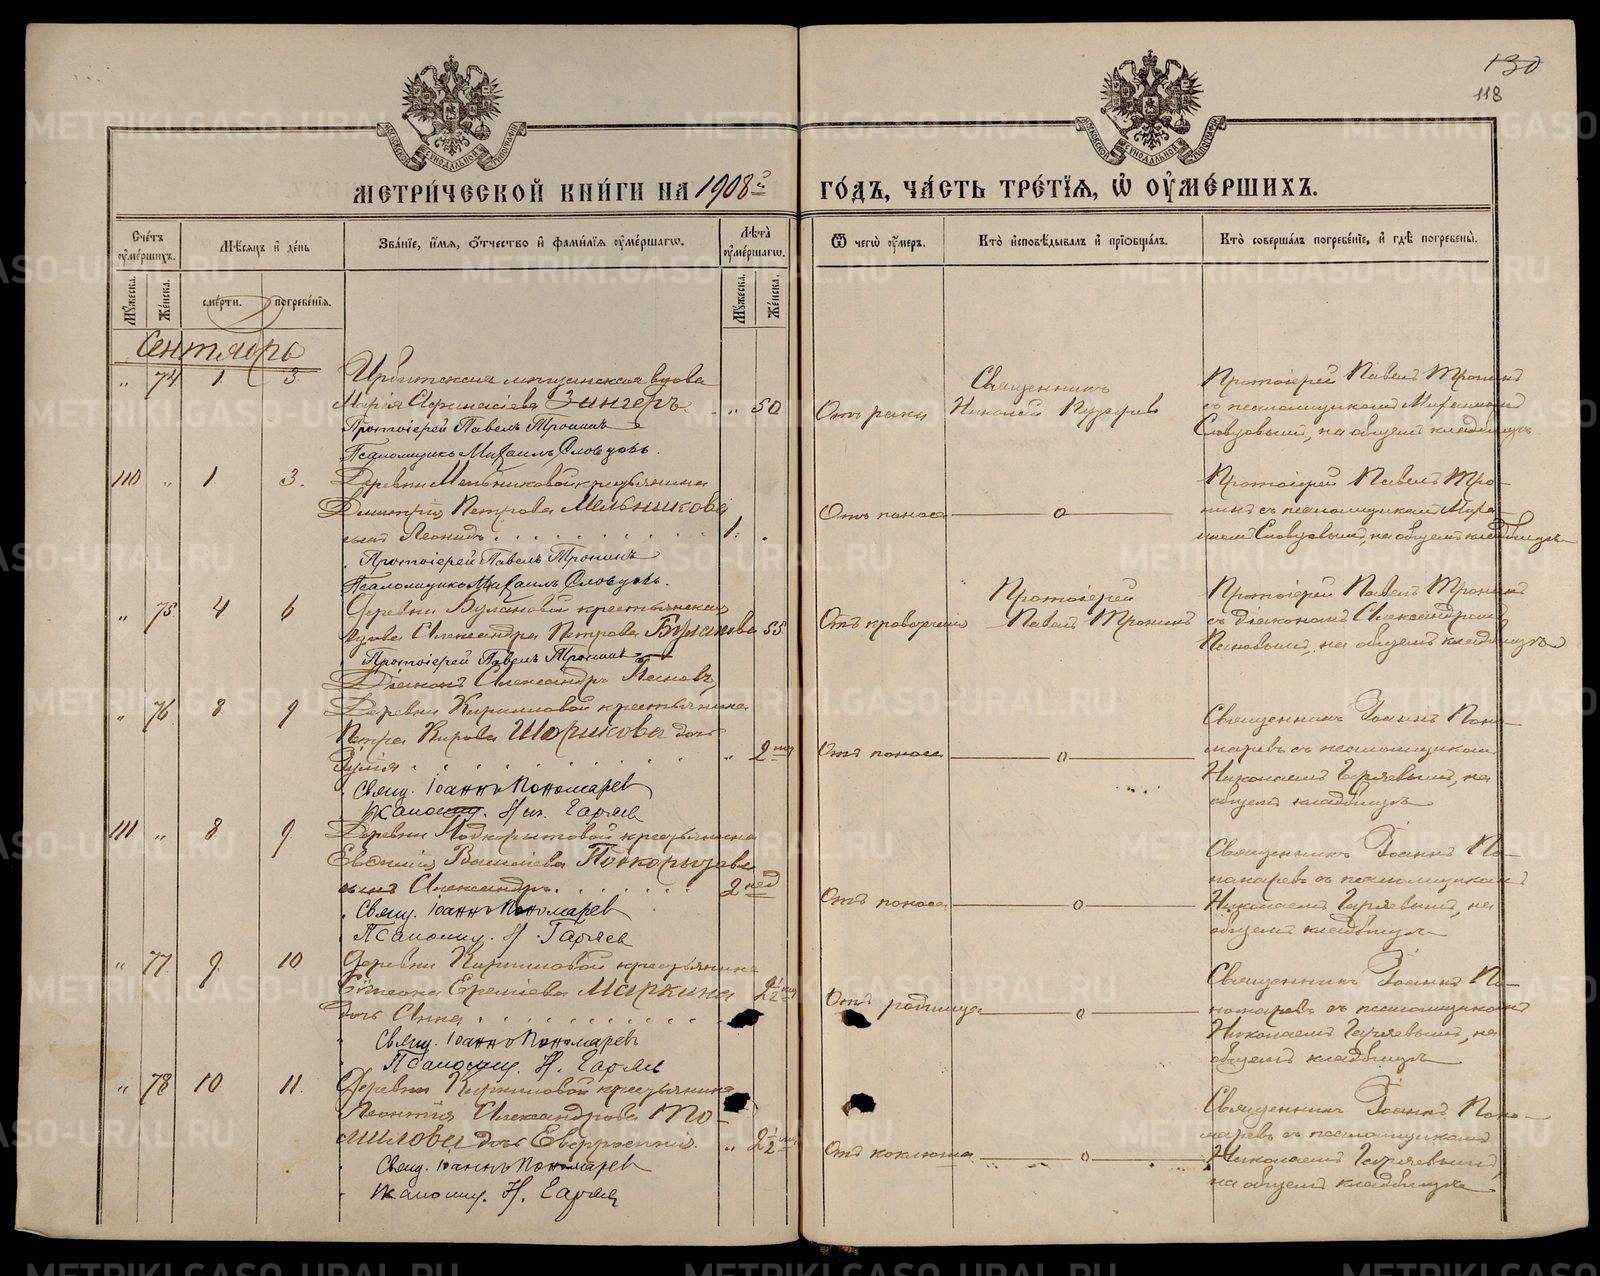 130
118
МОСКОВСКОЙ СѴНОДАЛЬНОЙ ТИПОГРАФІИ
МОСКОВСКОЙ СѴНОДАЛЬНОЙ ТИПОГРАФІИ
МЕТРИ́ЧЕСКОЙ КНИ́ГИ НА 1908й ГО́ДЪ, ЧА́СТЬ ТРЕ́ТІЯ, Ѡ҆ ОУ҆МЕ́РШИХЪ.
Сче́тъ оу҆ме́ршихъ.
Мѣ́сяцъ и҆ де́нь
Зва́ніе, и҆́мя, ѻ҆́тчество и҆ фами́лія оу҆ме́ршагѡ.
Лѣ́та оу҆ме́ршагѡ.
Ѿ чегѡ̀ оу҆́меръ.
Кто̀ и҆сповѣ́дывалъ и҆ прїѡбща́лъ.
Кто̀ соверша́лъ погребе́ніе, и҆ гдѣ̀ погребены̀.
Му́жеска.
Же́нска.
сме́рти.
погребе́нія.
Му́жеска.
Же́нска.
Сентябрь
„ 74 1 3 Ирбитская мѣщанская вдова
Марія Афанасіева Зингеръ „ 50
Протоіерей Павелъ Тронинъ
Псаломщикъ Михаилъ Словцовъ.
Отъ рака
Священникъ
Николай
Протоіерей Павелъ Тронинъ
съ псаломщикомъ Михаиломъ
Словцовымъ, на общемъ кладбищѣ
110 „ 1 3. Деревни Мельниковой крестьянина
Димитрія Петрова Мельникова
сынъ Леонидъ 1.
Протоіерей Павелъ Тронинъ
Псаломщикъ Михаилъ Словцовъ.
Отъ поноса
Протоіерей Павелъ Тро-
нинъ съ псаломщикомъ Миха-
иломъ Словцовымъ, на общемъ кладбищѣ
„ 75 4 6 Деревни Булановой крестьянская
вдова Александра Петрова Буланова 55
Протоіерей Павелъ Тронинъ
Діаконъ Александръ Пановъ
Отъ кровотеченія
Протоіерей
Павелъ Тронинъ
Протоіерей Павелъ Тронинъ
съ діакономъ Александромъ
Пановымъ, на общемъ кладбищѣ
„ 76 8 9 Деревни Кирилловой крестьянина
Петра Кирова Шорикова дочь
„ 2 мц
Свящ. Іоаннъ Пономарев
Псаломщ. Ник. Гаряев
Отъ поноса
Священникъ Іоаннъ Поно-
маревъ съ псаломщикомъ
Николаемъ Гаряевымъ, на
общемъ кладбищѣ
111 „ 8 9. Деревни Подкорытовой крестьянина
Евѳимія Василіева Подкорытова
сынъ Александръ 2 нед
Свящ. Іоаннъ Пономарев
Псаломщ. Н. Гаряев
Отъ поноса
Священникъ Іоаннъ По-
номаревъ съ псаломщикомъ
Николаемъ Гаряевымъ, на
общемъ кладбищѣ
„ 77 9. 10 Деревни Кирилловой крестьянина
Симеона Еремѣева Маркина 2½ мц
дочь Анна
Свящ. Іоаннъ Пономарев
Псаломщ. Н. Гаряев
Отъ родимца
Священникъ Іоаннъ По-
номаревъ съ псаломщикомъ
Николаемъ Гаряевымъ, на
общемъ кладбищѣ
„ 78 10 11. Деревни Кирилловой крестьянина
Леонтія Александрова То-
милова дочь Евфросинія. „ 2½ мц
Свящ. Іоаннъ Пономарев
Псаломщ. Н. Гаряев
Отъ коклюша
Священникъ Іоаннъ Поно-
маревъ съ псаломщикомъ
Николаемъ Гаряевымъ,
на общемъ кладбищѣ
METRIKI.GASO-URAL.RU